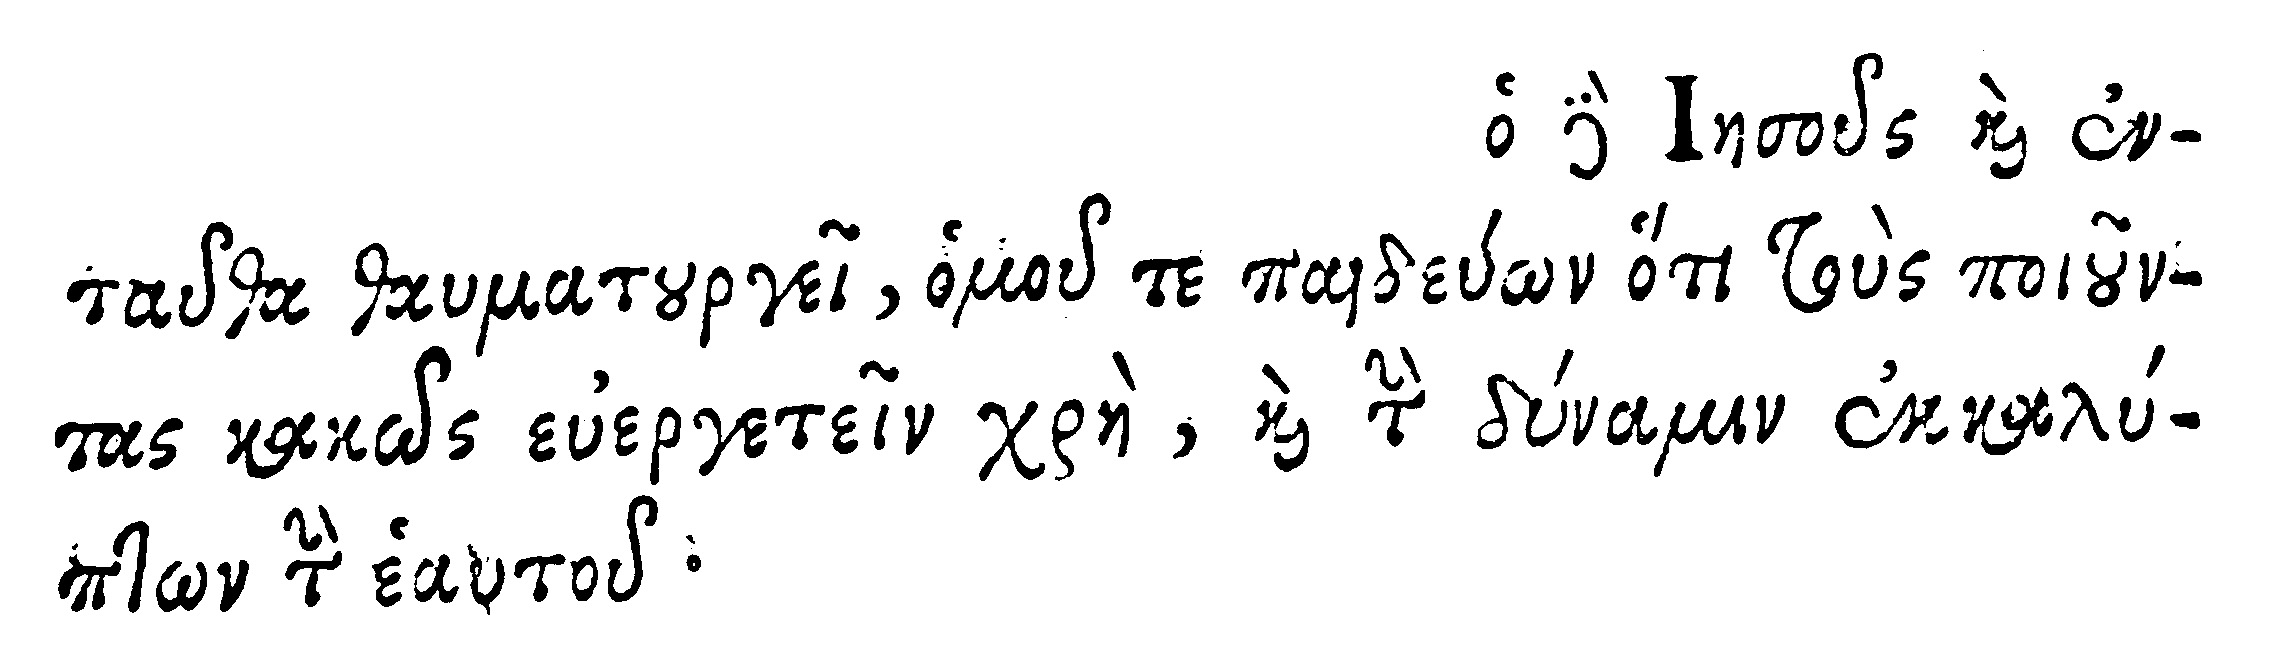 ὁ δὲ Ἰησοῦς καὶ ἐν-
ταῦθα θαυματουργεῖ, ὁμοῦ τε παιδεύων ὅτι τοὺς ποιοῦν-
τας κακῶς εὐεργετεῖν χρὴ, καὶ τὴν δύναμιν ἐκκαλύ-
πτων τὴν ἑαυτοῦ·